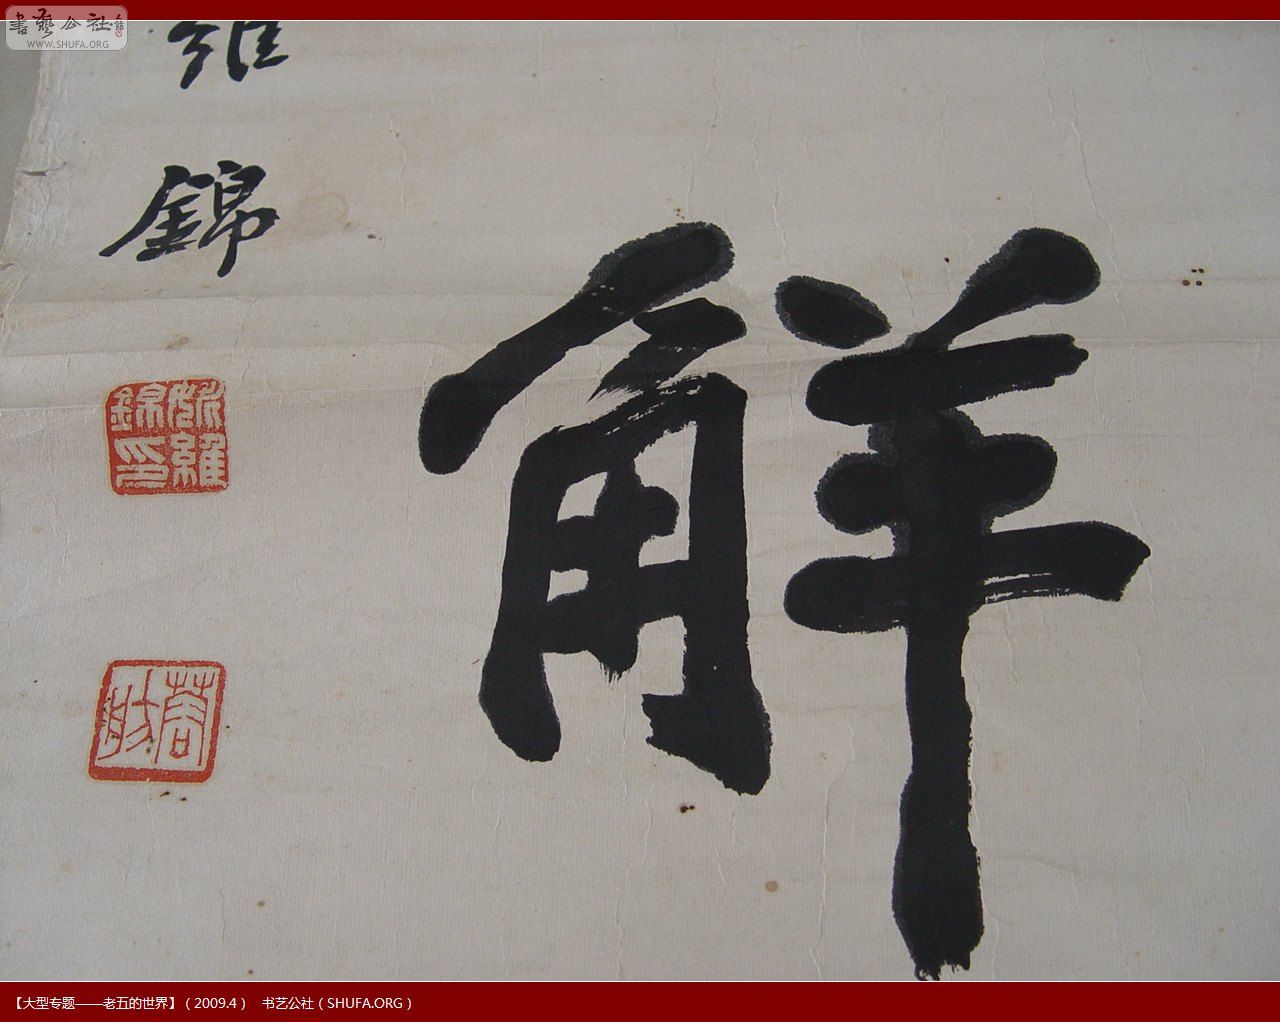 書藝公社
WWW.SHUFA.ORG
觧
維錦
維
錦印
【大型专题——老五的世界】（2009.4） 书艺公社（SHUFA.ORG）